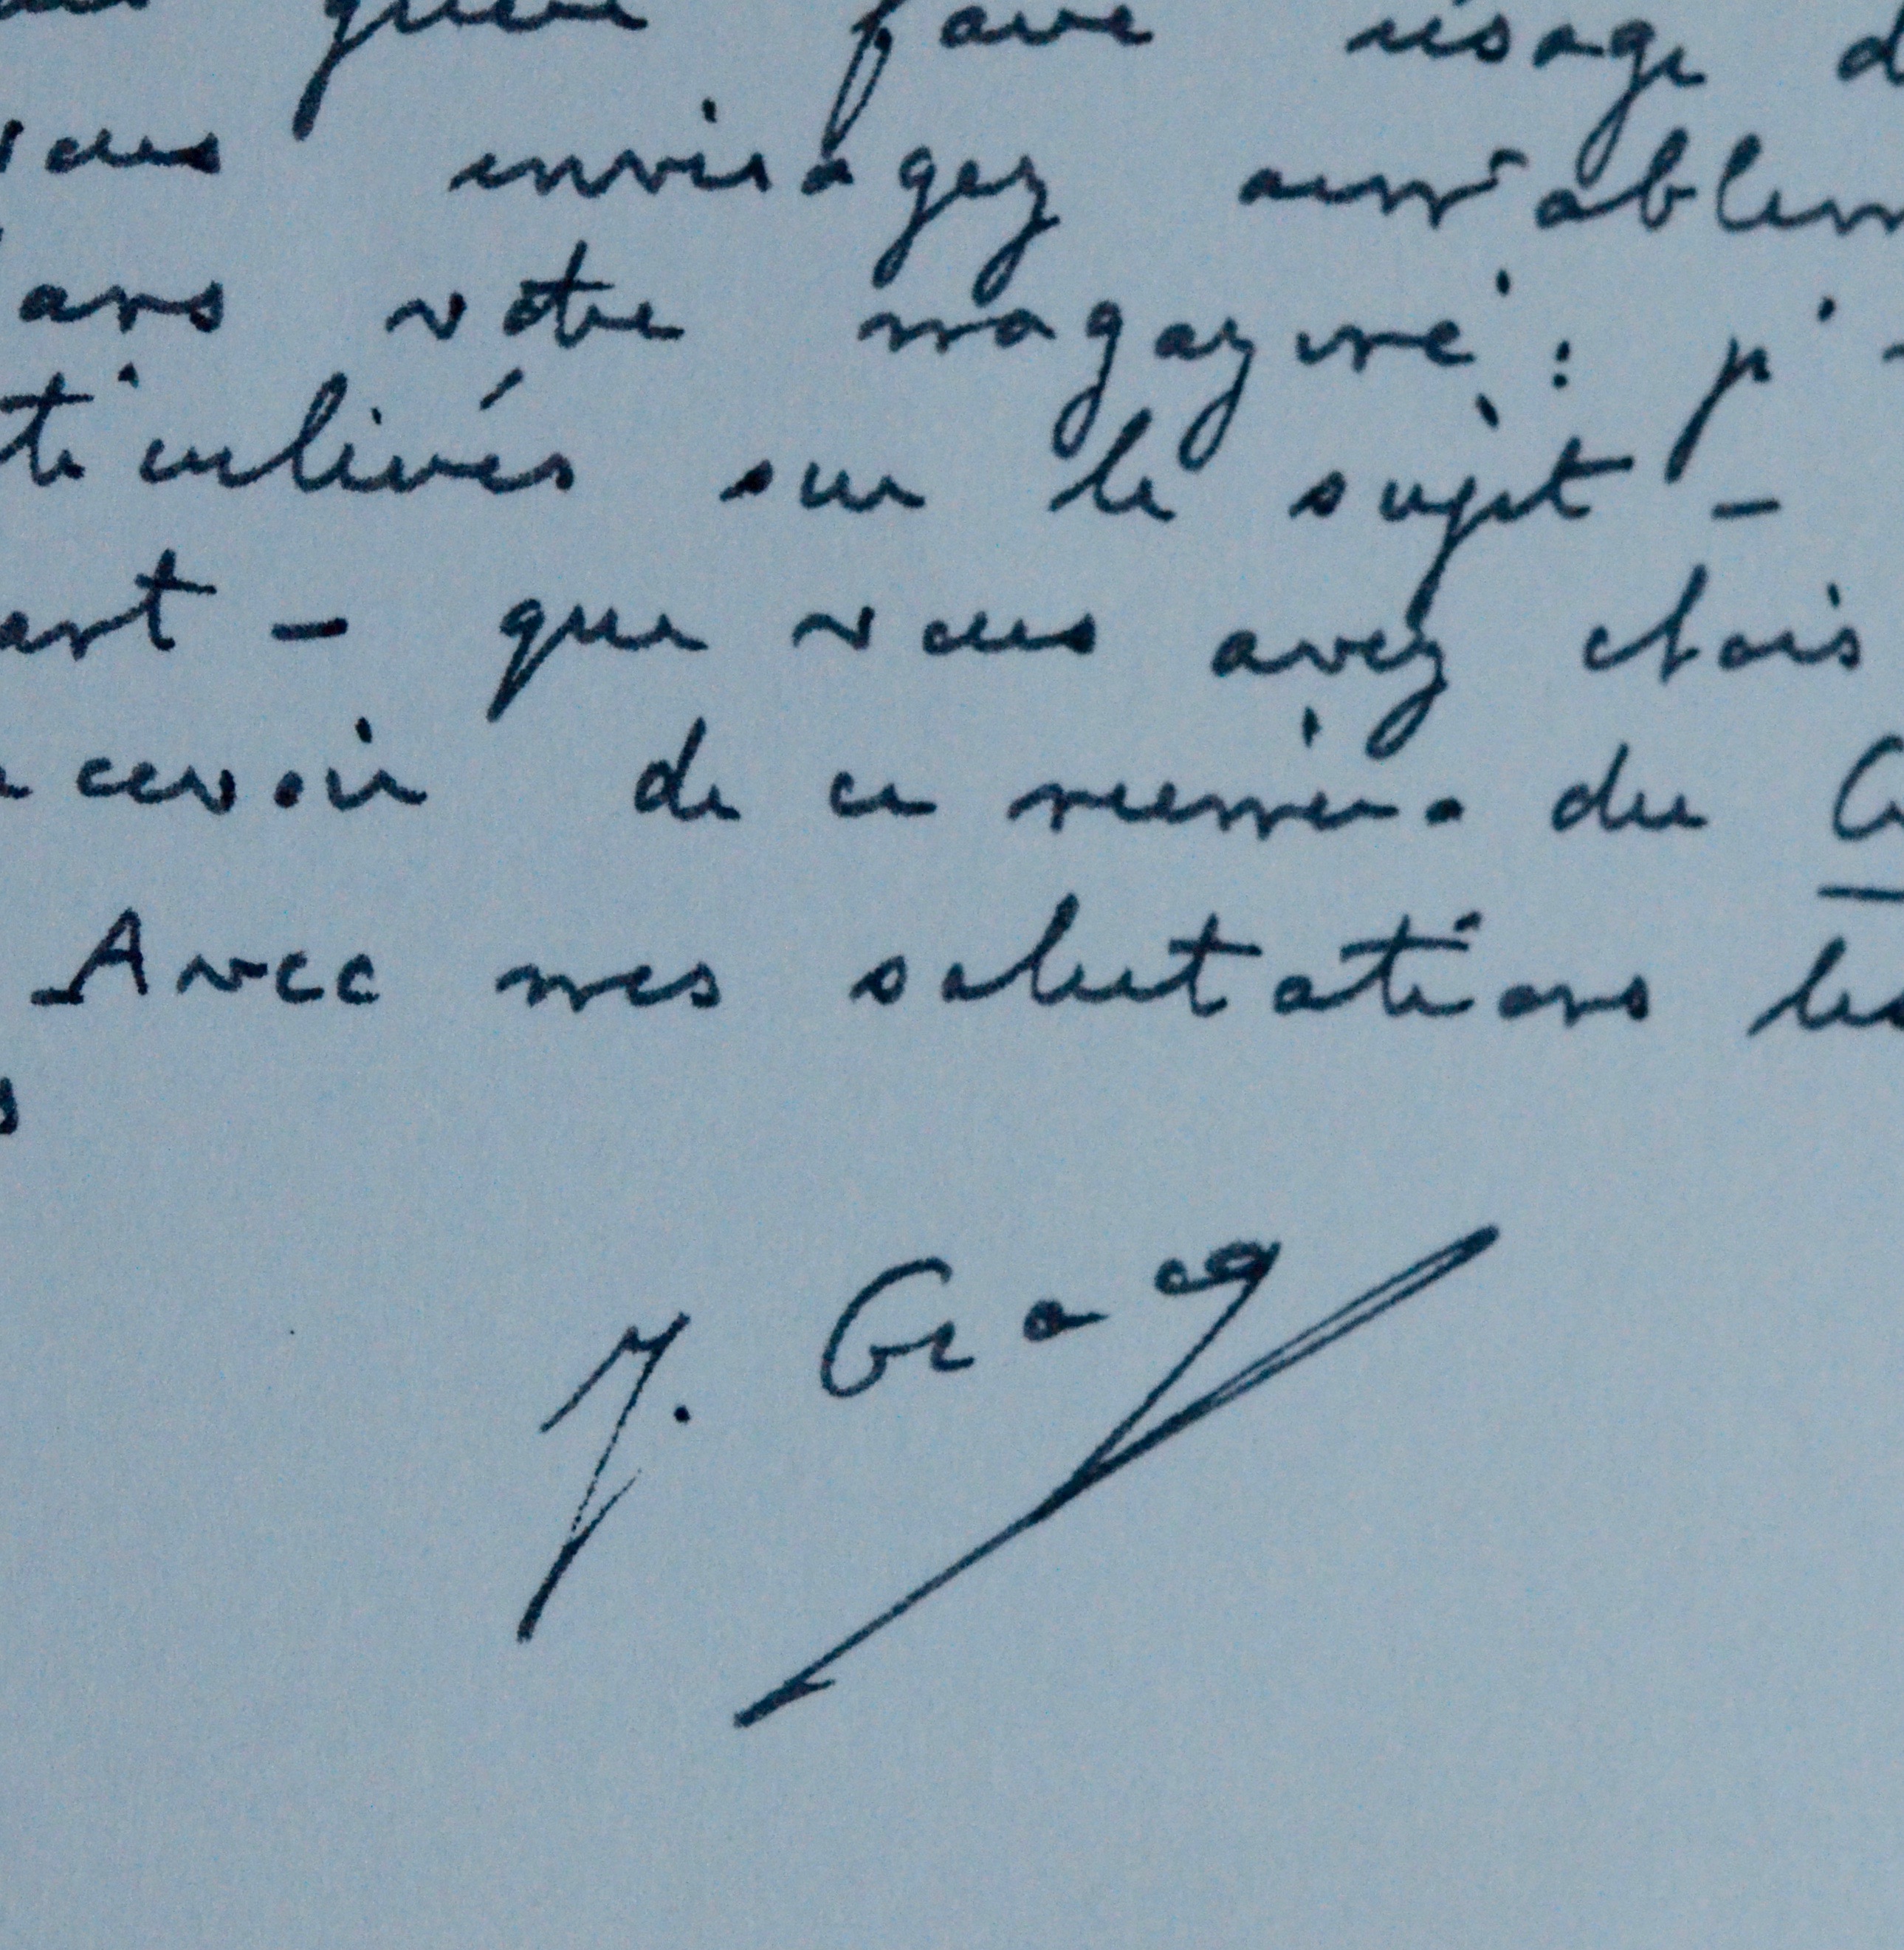 guère faire usage d
vous envisagez aimablem
ans votre magazine : j'
ticuliers sur le sujet -
ant - que vous avez chois
cevoir de ce numéro du
Avec mes salutations les
s
J. Gracq